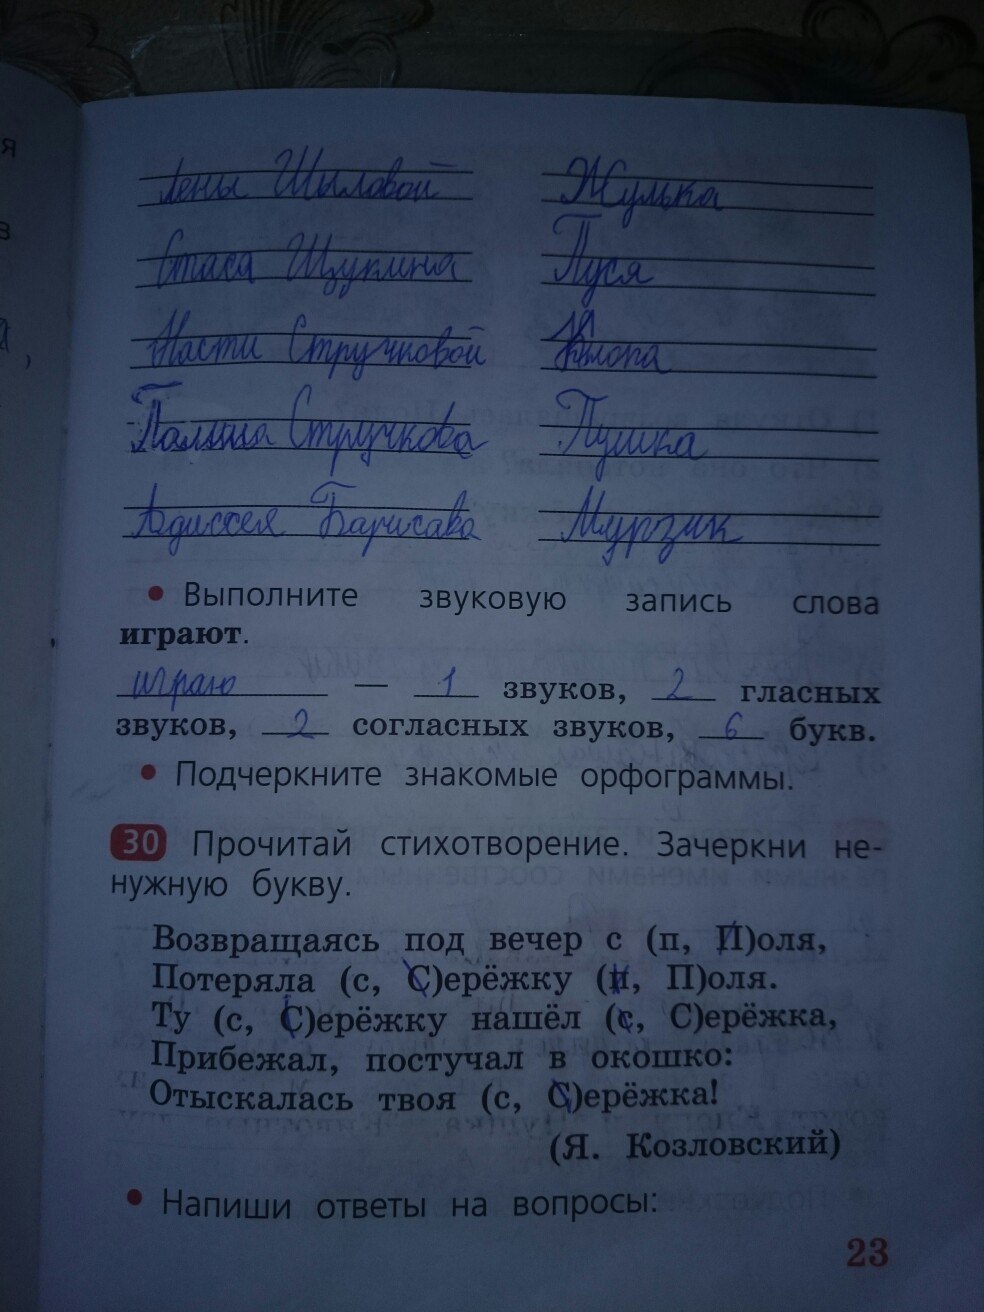 я
в
,
Лены Шыловой Жулька
Стаса Щукина Пуся
Насти Стручковой Клопа
Полина Стручкова Пушка
Адиссея Барисава Мурзик
• Выполните звуковую запись слова
играют.
играю — 1 звуков, 2 гласных
звуков, 2 согласных звуков, 6 букв.
• Подчеркните знакомые орфограммы.
30 Прочитай стихотворение. Зачеркни не-
нужную букву.
Возвращаясь под вечер с (п, П)оля,
Потеряла (с, С)ерёжку (п, П)оля.
Ту (с, С)ерёжку нашёл (с, С)ерёжка,
Прибежал, постучал в окошко:
Отыскалась твоя (с, С)ерёжка!
(Я. Козловский)
• Напиши ответы на вопросы:
23